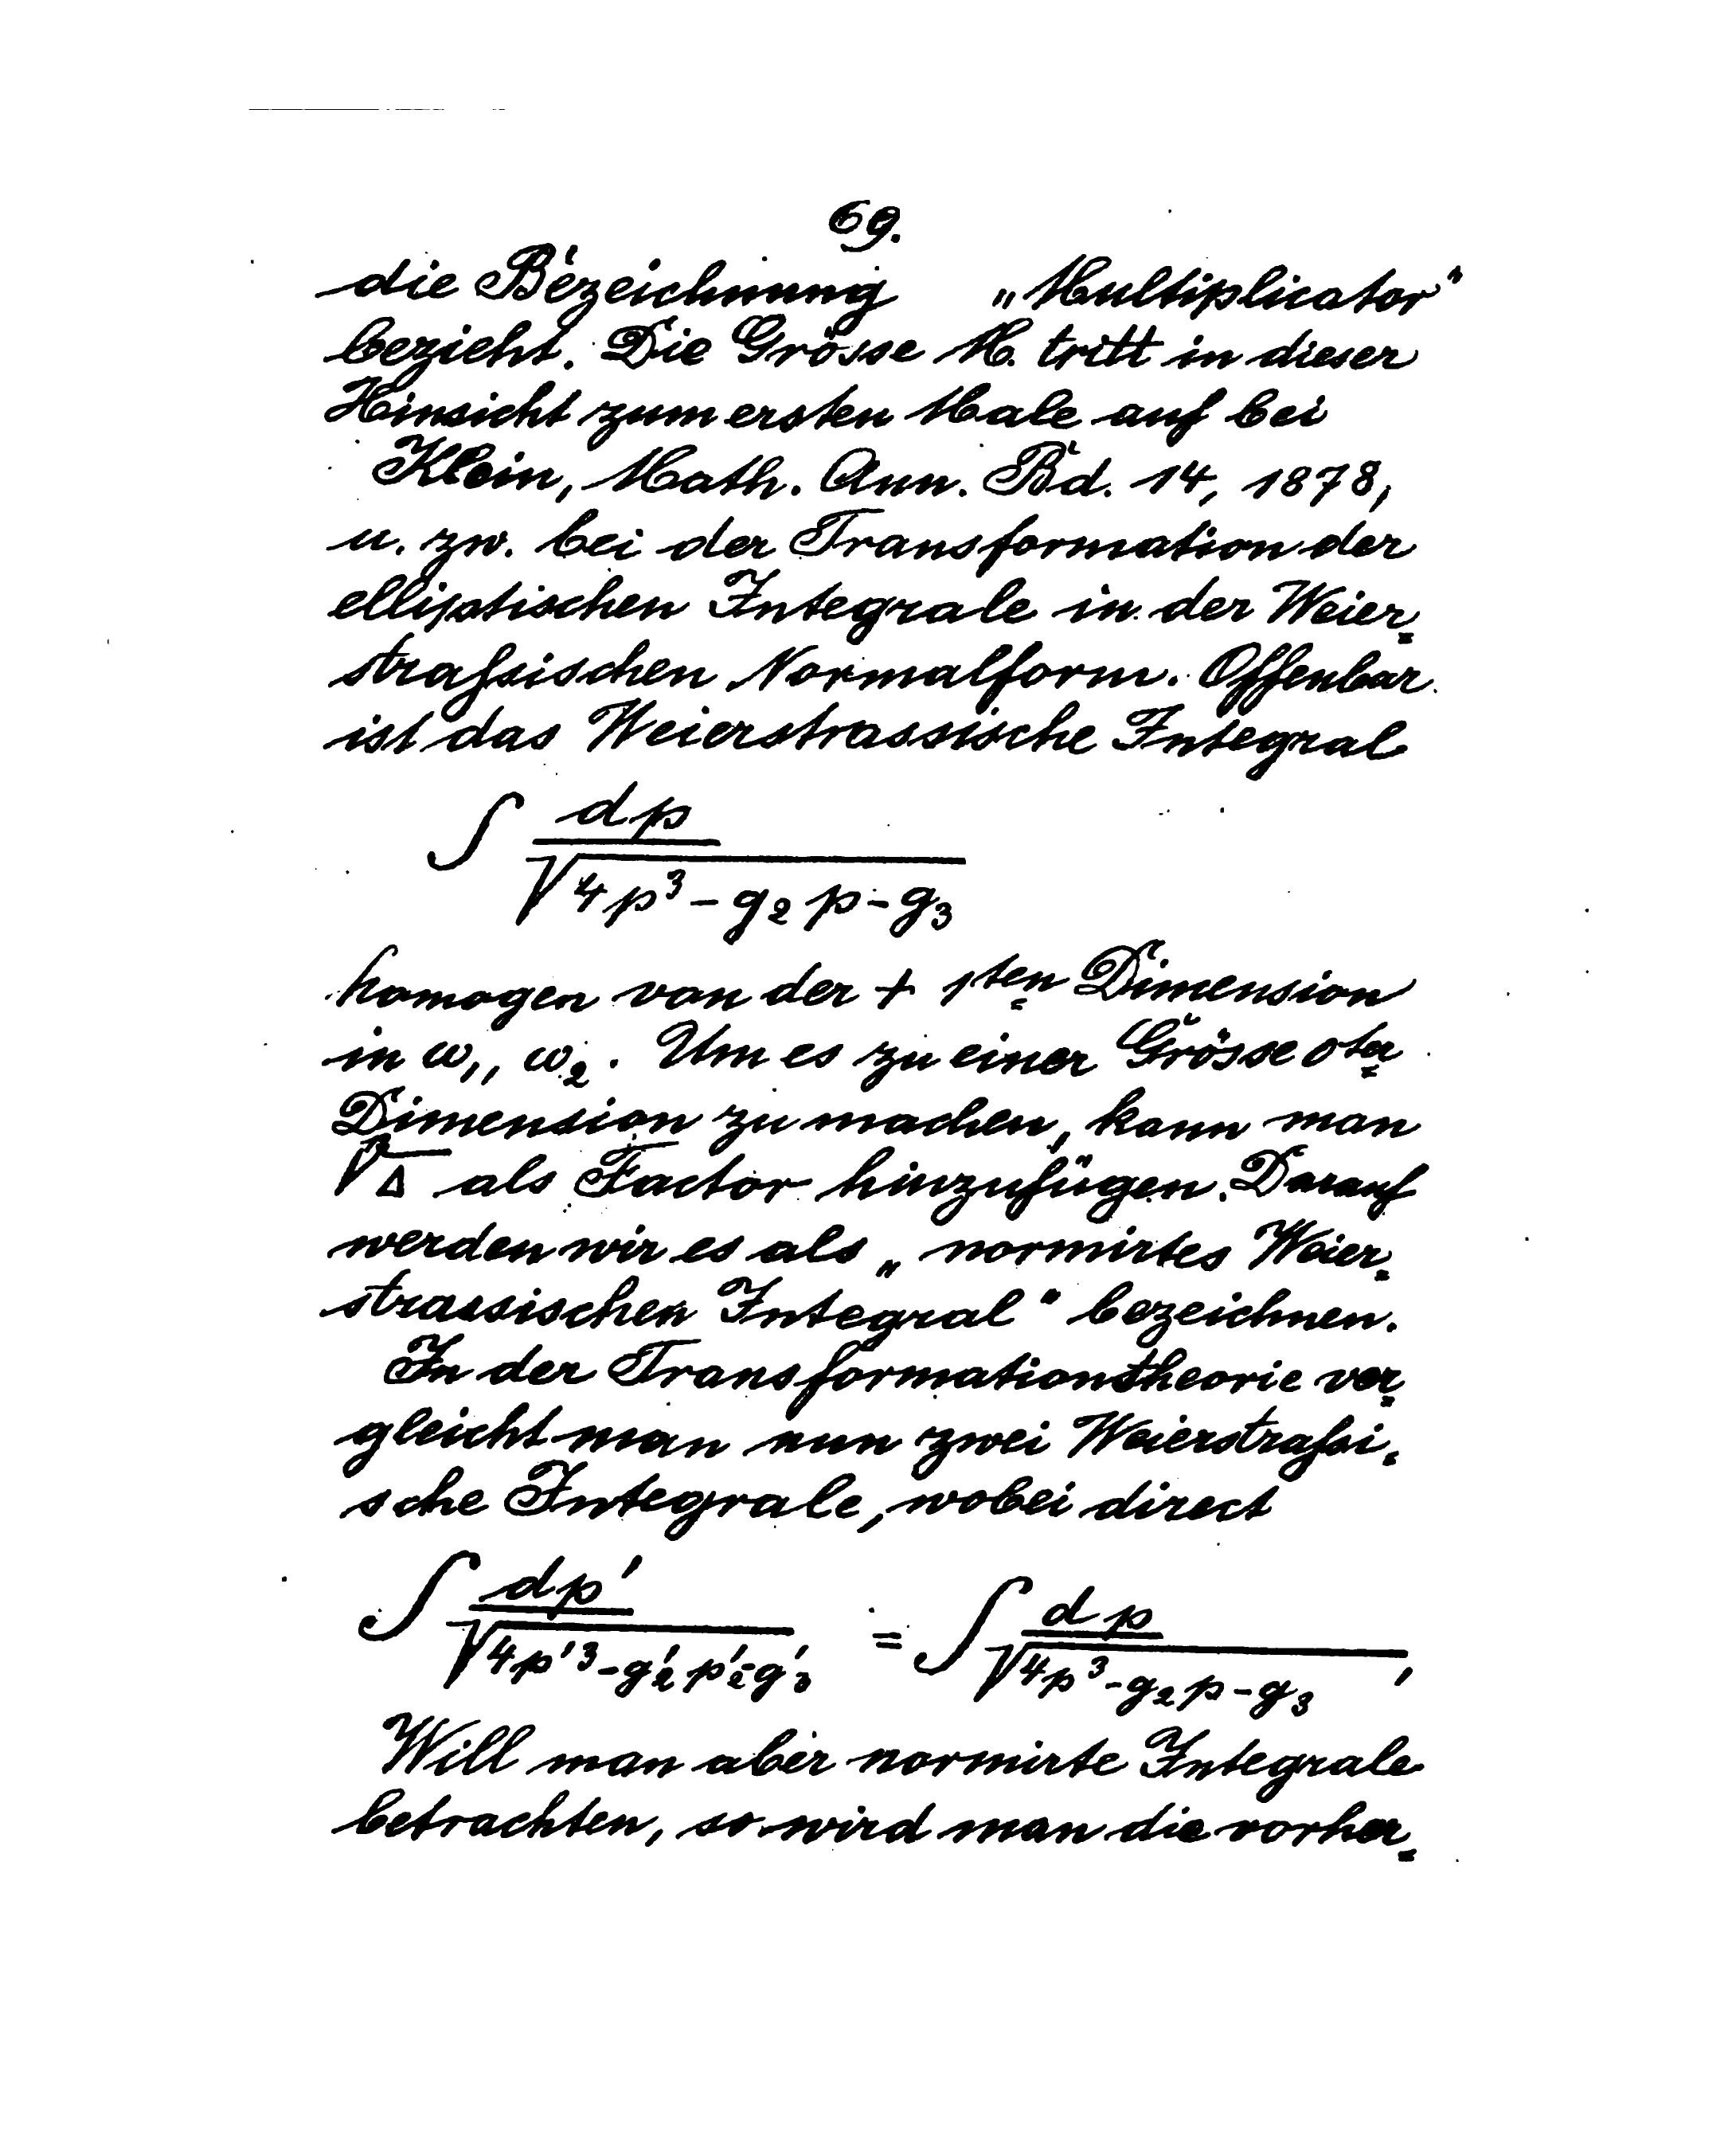 69.
die Bezeichnung „Multiplicator“
bezieht. Die Grösse M. tritt in dieser
Hinsicht zum ersten Male auf bei
Klein, Math. Ann. Bd. 14, 1878,
u. zw. bei der Transformation der
elliptischen Integrale in der Weier=
straſsischen Normalform. Offenbar
ist das Weierstrassische Integral
∫ dp / √(4p³ - g₂p - g₃)
homogen von der + 1ten Dimension
in ω₁, ω₂. Um es zu einer Grösse 0ter
Dimension zu machen, kann man
√Δ als Factor hinzufügen. Darauf
werden wir es als „normirtes Weier=
strassischen Integral“ bezeichnen.
In der Transformationstheorie ver=
gleicht man nun zwei Weierstraſsi=
sche Integrale, wobei direct
∫ dp' / √(4p'³ - g'₂p' - g'₃) = ∫ dp / √(4p³ - g₂p - g₃),
Will man aber normirte Integrale
betrachten, so wird man die vorher=